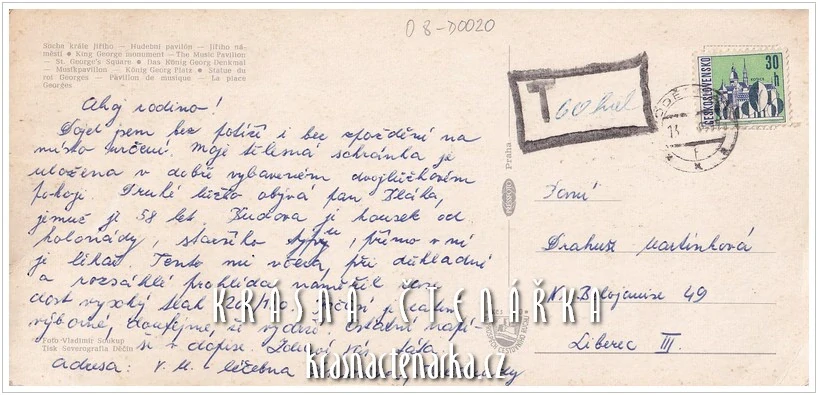 08-D0020
Socha krále Jiřího — Hudební pavilón — Jiřího ná-
městí • King George monument — The Music Pavilion
— St. George's Square • Das König Georg Denkmal
— Musikpavillon — König Georg Platz • Statue du
roi Georges — Pavillon de musique — La place
Georges
Ahoj rodino!
Dojel jsem bez potíží i bez zpoždění na
místo určení. Moje tělesná schránka je
uložena v dobře vybaveném dvojlůžkovém
pokoji. Druhé lůžko obývá pan
jemuž je 58 let. Budova je kousek od
kolonády, staršího typu, přímo v ní
je lékař. Tento mi včera, při důkladné
a rozsáhlé prohlídce naměřil
dost vysoký tlak
výborné, doufejme, že vydrží. Ostatní napí-
ši v dopise. Zdraví Vás táta
Adresa: V. M. léčebna
Foto Vladimír Soukup
Tisk Severografia Děčín
T 60 hal
ČESKOSLOVENSKO
30 h
Praha
PRESSFOTO
Paní
Drahuš Martinková
49
Liberec III.
KRÁSNÁ ČTENÁŘKA
krasnactenarka.cz